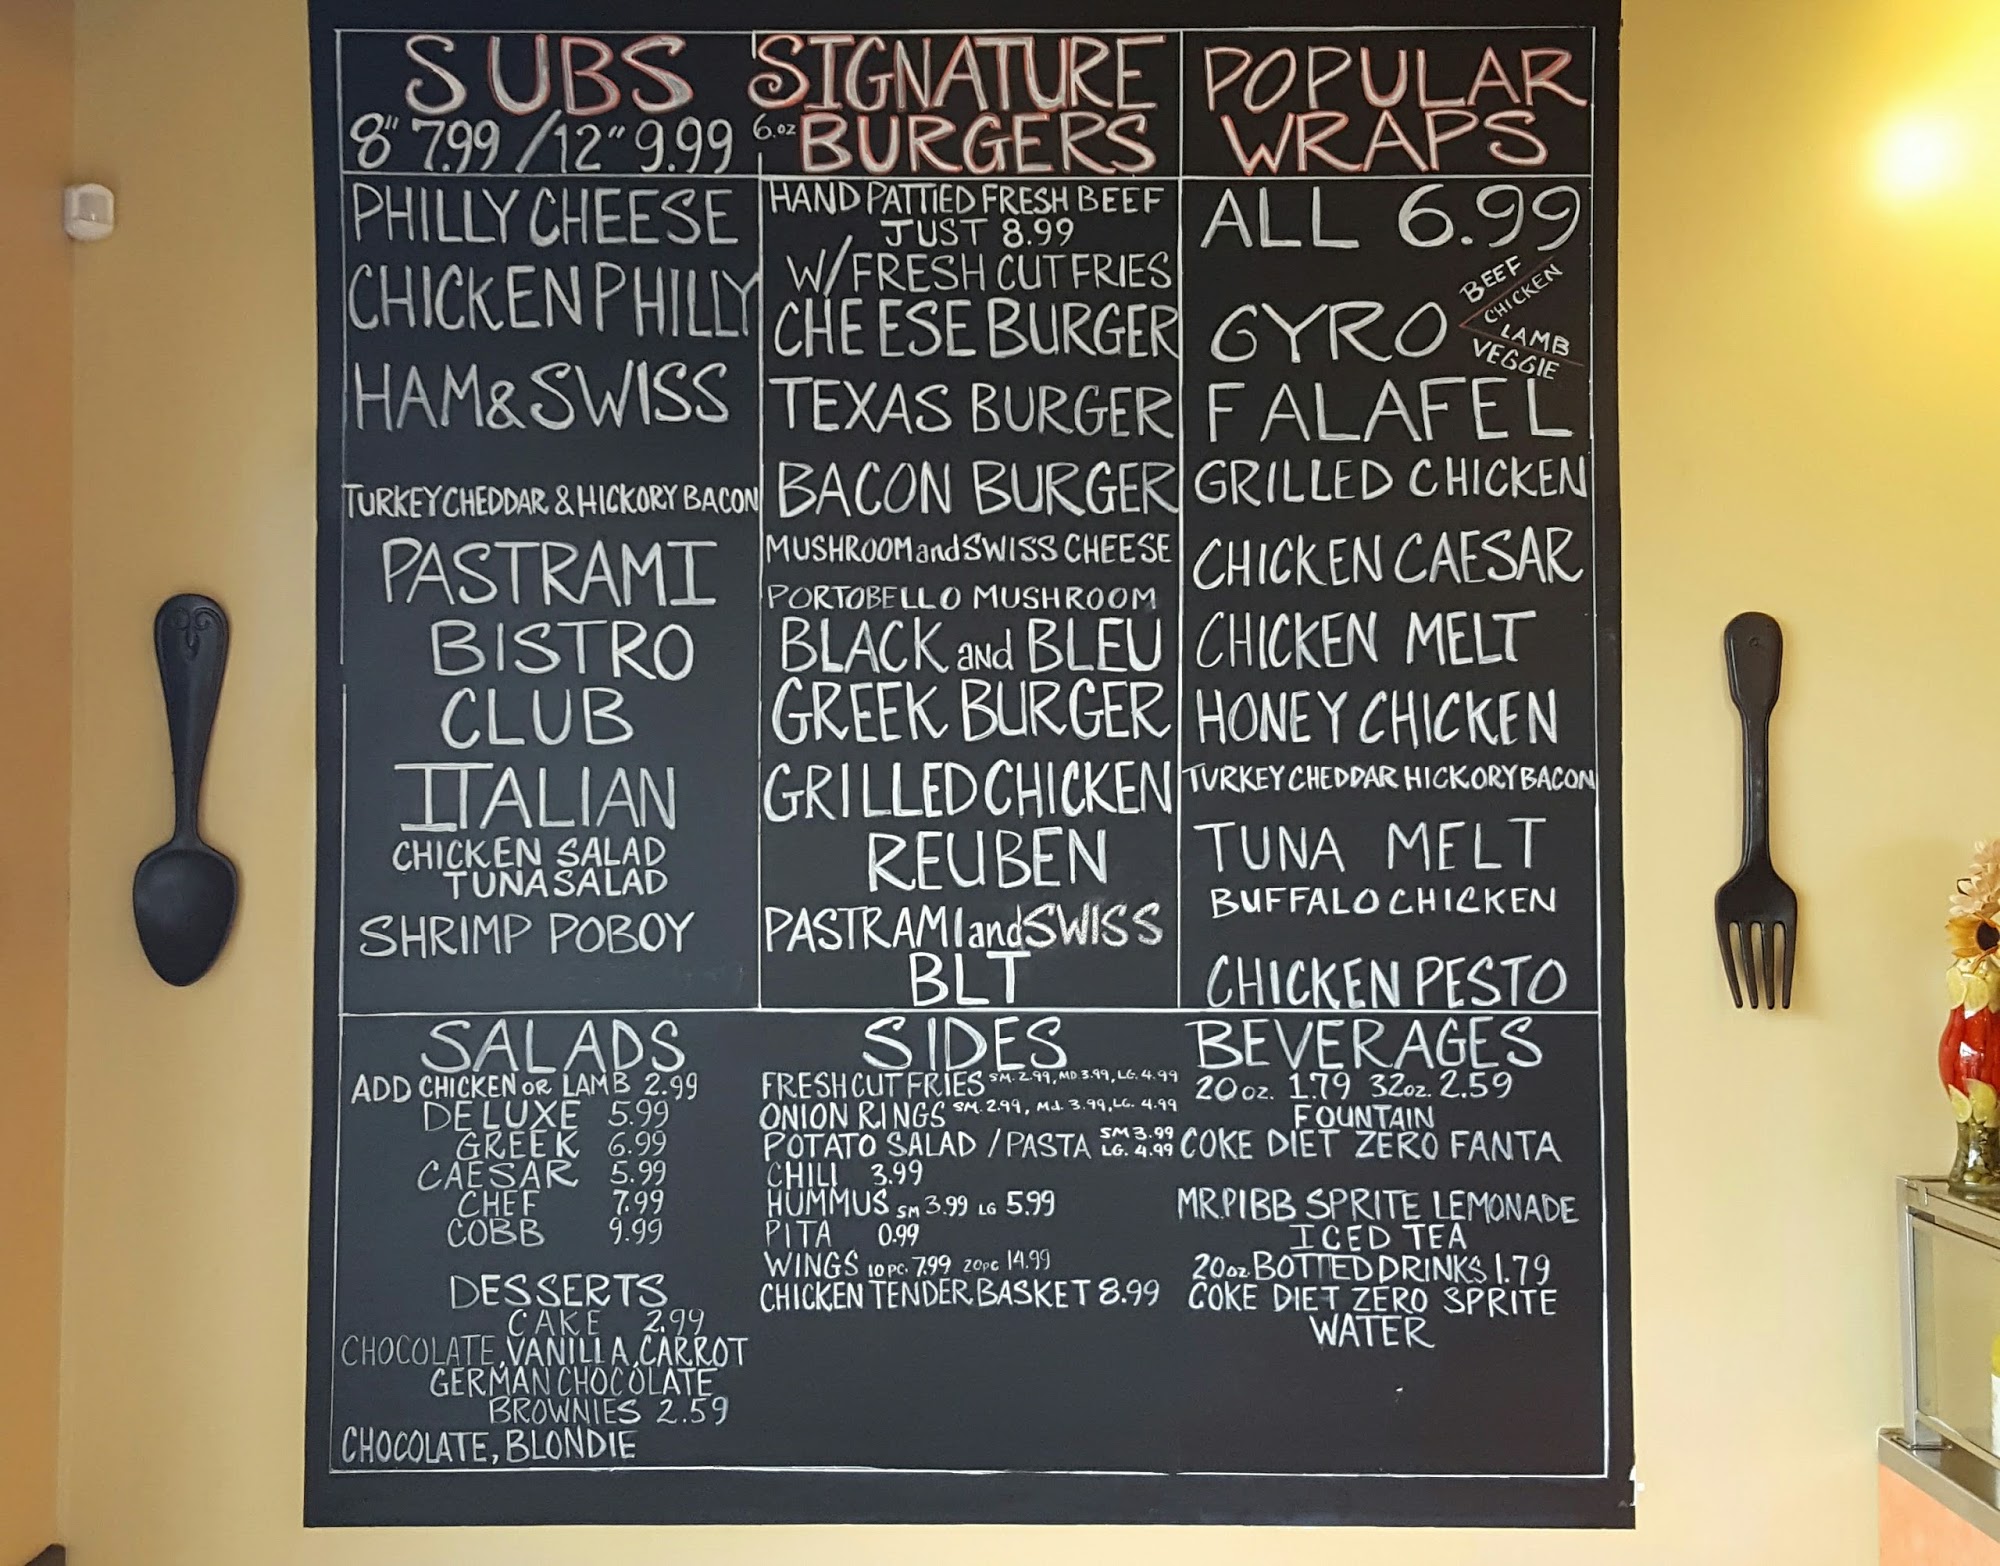 SUBS
8" 7.99 / 12" 9.99
PHILLY CHEESE
CHICKEN PHILLY
HAM & SWISS
TURKEY CHEDDAR & HICKORY BACON
PASTRAMI
BISTRO
CLUB
ITALIAN
CHICKEN SALAD
TUNA SALAD
SHRIMP POBOY
SIGNATURE
6.oz BURGERS
HAND PATTIED FRESH BEEF
JUST 8.99
W/FRESH CUT FRIES
CHEESE BURGER
TEXAS BURGER
BACON BURGER
MUSHROOM and SWISS CHEESE
PORTOBELLO MUSHROOM
BLACK and BLEU
GREEK BURGER
GRILLED CHICKEN
REUBEN
PASTRAMI and SWISS
BLT
POPULAR
WRAPS
ALL 6.99
GYRO
BEEF
CHICKEN
LAMB
VEGGIE
FALAFEL
GRILLED CHICKEN
CHICKEN CAESAR
CHICKEN MELT
HONEY CHICKEN
TURKEY CHEDDAR HICKORY BACON
TUNA MELT
BUFFALO CHICKEN
CHICKEN PESTO
SALADS
ADD CHICKEN OR LAMB 2.99
DELUXE 5.99
GREEK 6.99
CAESAR 5.99
CHEF 7.99
COBB 9.99
DESSERTS
CAKE 2.99
CHOCOLATE, VANILLA, CARROT
GERMAN CHOCOLATE
BROWNIES 2.59
CHOCOLATE, BLONDIE
SIDES
FRESH CUT FRIES SM. 2.99, MD 3.99, LG. 4.99
ONION RINGS SM. 2.99, Md. 3.99, LG. 4.99
POTATO SALAD / PASTA SM 3.99 LG. 4.99
CHILI 3.99
HUMMUS SM 3.99 LG 5.99
PITA 0.99
WINGS 10 PC. 7.99 20PC 14.99
CHICKEN TENDER BASKET 8.99
BEVERAGES
20 oz. 1.79 32oz. 2.59
FOUNTAIN
COKE DIET ZERO FANTA
MR.PIBB SPRITE LEMONADE
ICED TEA
20oz. BOTTED DRINKS 1.79
COKE DIET ZERO SPRITE
WATER